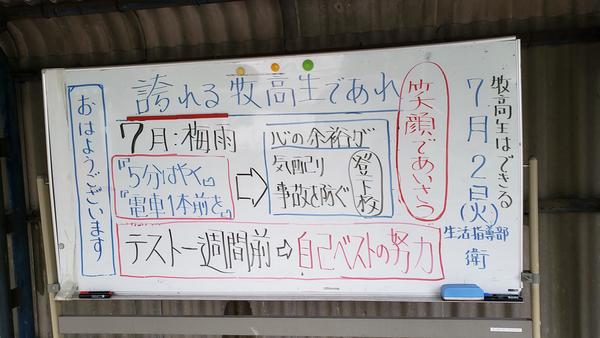 誇れる牧高生であれ
牧高生はできる
7月2日(火)
生活指導部
衛
笑顔であいさつ
おはようございます
7月:梅雨
『5分はやく』
『電車1本前を』
⇨
心の余裕が
気配り
事故を防ぐ
登下校
テスト一週間前⇨自己ベストの努力